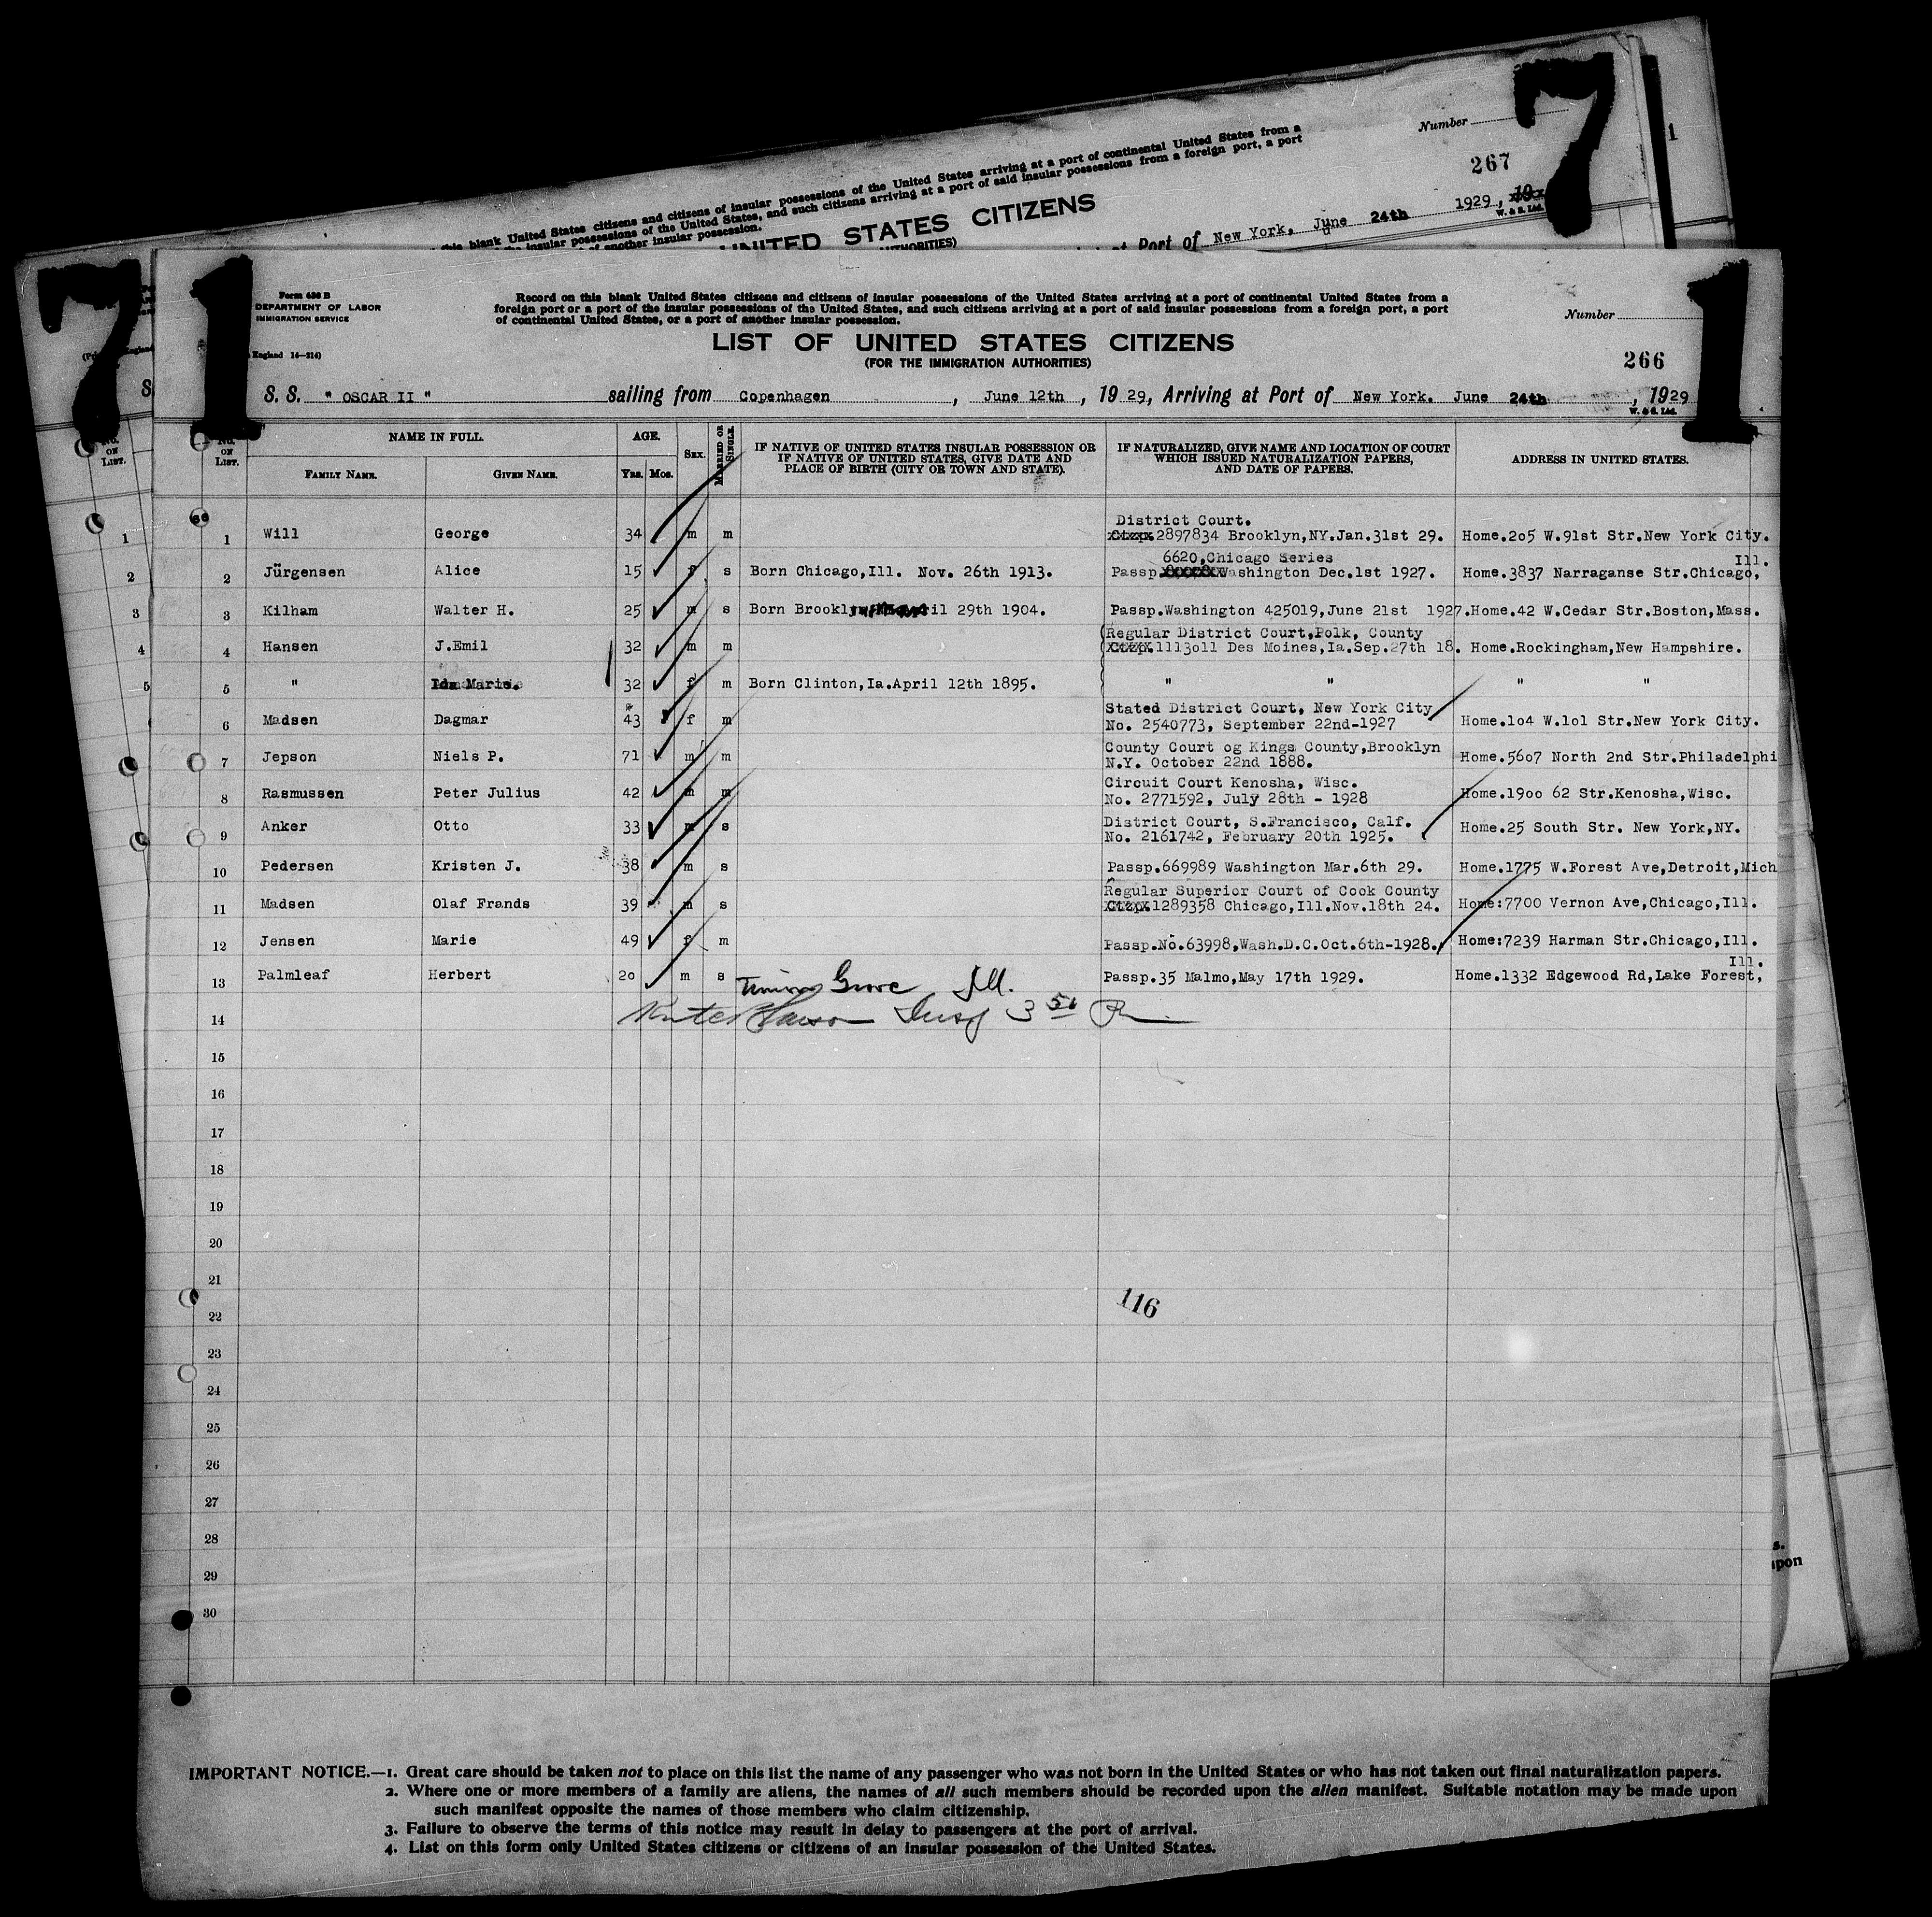 Number
7
1
267
this blank United States citizens and citizens of insular possessions of the United States arriving at a port of continental United States from a
the insular possessions of the United States, and such citizens arriving at a port of said insular possessions from a foreign port, a port
of another insular possession.
UNITED STATES CITIZENS
Port of New York, June 24th 1929,
W. & S. Ltd.
7
S
NO. ON LIST.
1
2
3
4
5
1
1
Form 630 B
DEPARTMENT OF LABOR
IMMIGRATION SERVICE
England 14—214)
Record on this blank United States citizens and citizens of insular possessions of the United States arriving at a port of continental United States from a
foreign port or a port of the insular possessions of the United States, and such citizens arriving at a port of said insular possessions from a foreign port, a port
of continental United States, or a port of another insular possession.
Number
LIST OF UNITED STATES CITIZENS
(FOR THE IMMIGRATION AUTHORITIES)
266
S. S. " OSCAR II " sailing from Copenhagen , June 12th , 19 29, Arriving at Port of New York. June 24th , 1929
W. & S. Ltd.
NO. ON LIST. NAME IN FULL. AGE. SEX. MARRIED OR SINGLE. IF NATIVE OF UNITED STATES INSULAR POSSESSION OR IF NATIVE OF UNITED STATES, GIVE DATE AND PLACE OF BIRTH (CITY OR TOWN AND STATE). IF NATURALIZED, GIVE NAME AND LOCATION OF COURT WHICH ISSUED NATURALIZATION PAPERS, AND DATE OF PAPERS. ADDRESS IN UNITED STATES.
FAMILY NAME. GIVEN NAME. YRS. MOS.
District Court.
1 Will George 34 m m 2897834 Brooklyn,NY.Jan.31st 29. Home.2o5 W.91st Str.New York City.
6620,Chicago Series Ill.
2 Jürgensen Alice 15 f s Born Chicago,Ill. Nov. 26th 1913. Passp. Washington Dec.1st 1927. Home.3837 Narraganse Str.Chicago,
3 Kilham Walter H. 25 m s Born Brooklyn April 29th 1904. Passp.Washington 425019,June 21st 1927. Home.42 W.Cedar Str.Boston,Mass.
Regular District Court,Polk, County
4 Hansen J.Emil 32 m m 1113o11 Des Moines,Ia.Sep.27th 18. Home.Rockingham,New Hampshire.
5 " Ida Marie. 32 f m Born Clinton,Ia.April 12th 1895. " " " "
Stated District Court, New York City
6 Madsen Dagmar 43 f m No. 2540773, September 22nd-1927 Home.1o4 W.1o1 Str.New York City.
County Court og Kings County,Brooklyn
7 Jepson Niels P. 71 m m N.Y. October 22nd 1888. Home.56o7 North 2nd Str.Philadelphi
Circuit Court Kenosha, Wisc.
8 Rasmussen Peter Julius 42 m m No. 2771592, July 28th - 1928 Home.19oo 62 Str.Kenosha,Wisc.
District Court, S.Francisco, Calf.
9 Anker Otto 33 m s No. 2161742, February 20th 1925. Home.25 South Str. New York,NY.
10 Pedersen Kristen J. 38 m s Passp.669989 Washington Mar.6th 29. Home.1775 W.Forest Ave,Detroit,Mich
Regular Superior Court of Cook County
11 Madsen Olaf Frands 39 m s 1289358 Chicago,Ill.Nov.18th 24. Home:7700 Vernon Ave,Chicago,Ill.
12 Jensen Marie 49 f m Passp.No.63998,Wash.D.C.Oct.6th-1928. Home:7239 Harman Str.Chicago,Ill.
Ill.
13 Palmleaf Herbert 2o m s Grove Ill. Passp.35 Malmo,May 17th 1929. Home.1332 Edgewood Rd,Lake Forest,
14
15
16
17
18
19
20
21
116
22
23
24
25
26
27
28
29
30
s.
upon
IMPORTANT NOTICE.—1. Great care should be taken not to place on this list the name of any passenger who was not born in the United States or who has not taken out final naturalization papers.
2. Where one or more members of a family are aliens, the names of all such members should be recorded upon the alien manifest. Suitable notation may be made upon
such manifest opposite the names of those members who claim citizenship.
3. Failure to observe the terms of this notice may result in delay to passengers at the port of arrival.
4. List on this form only United States citizens or citizens of an insular possession of the United States.